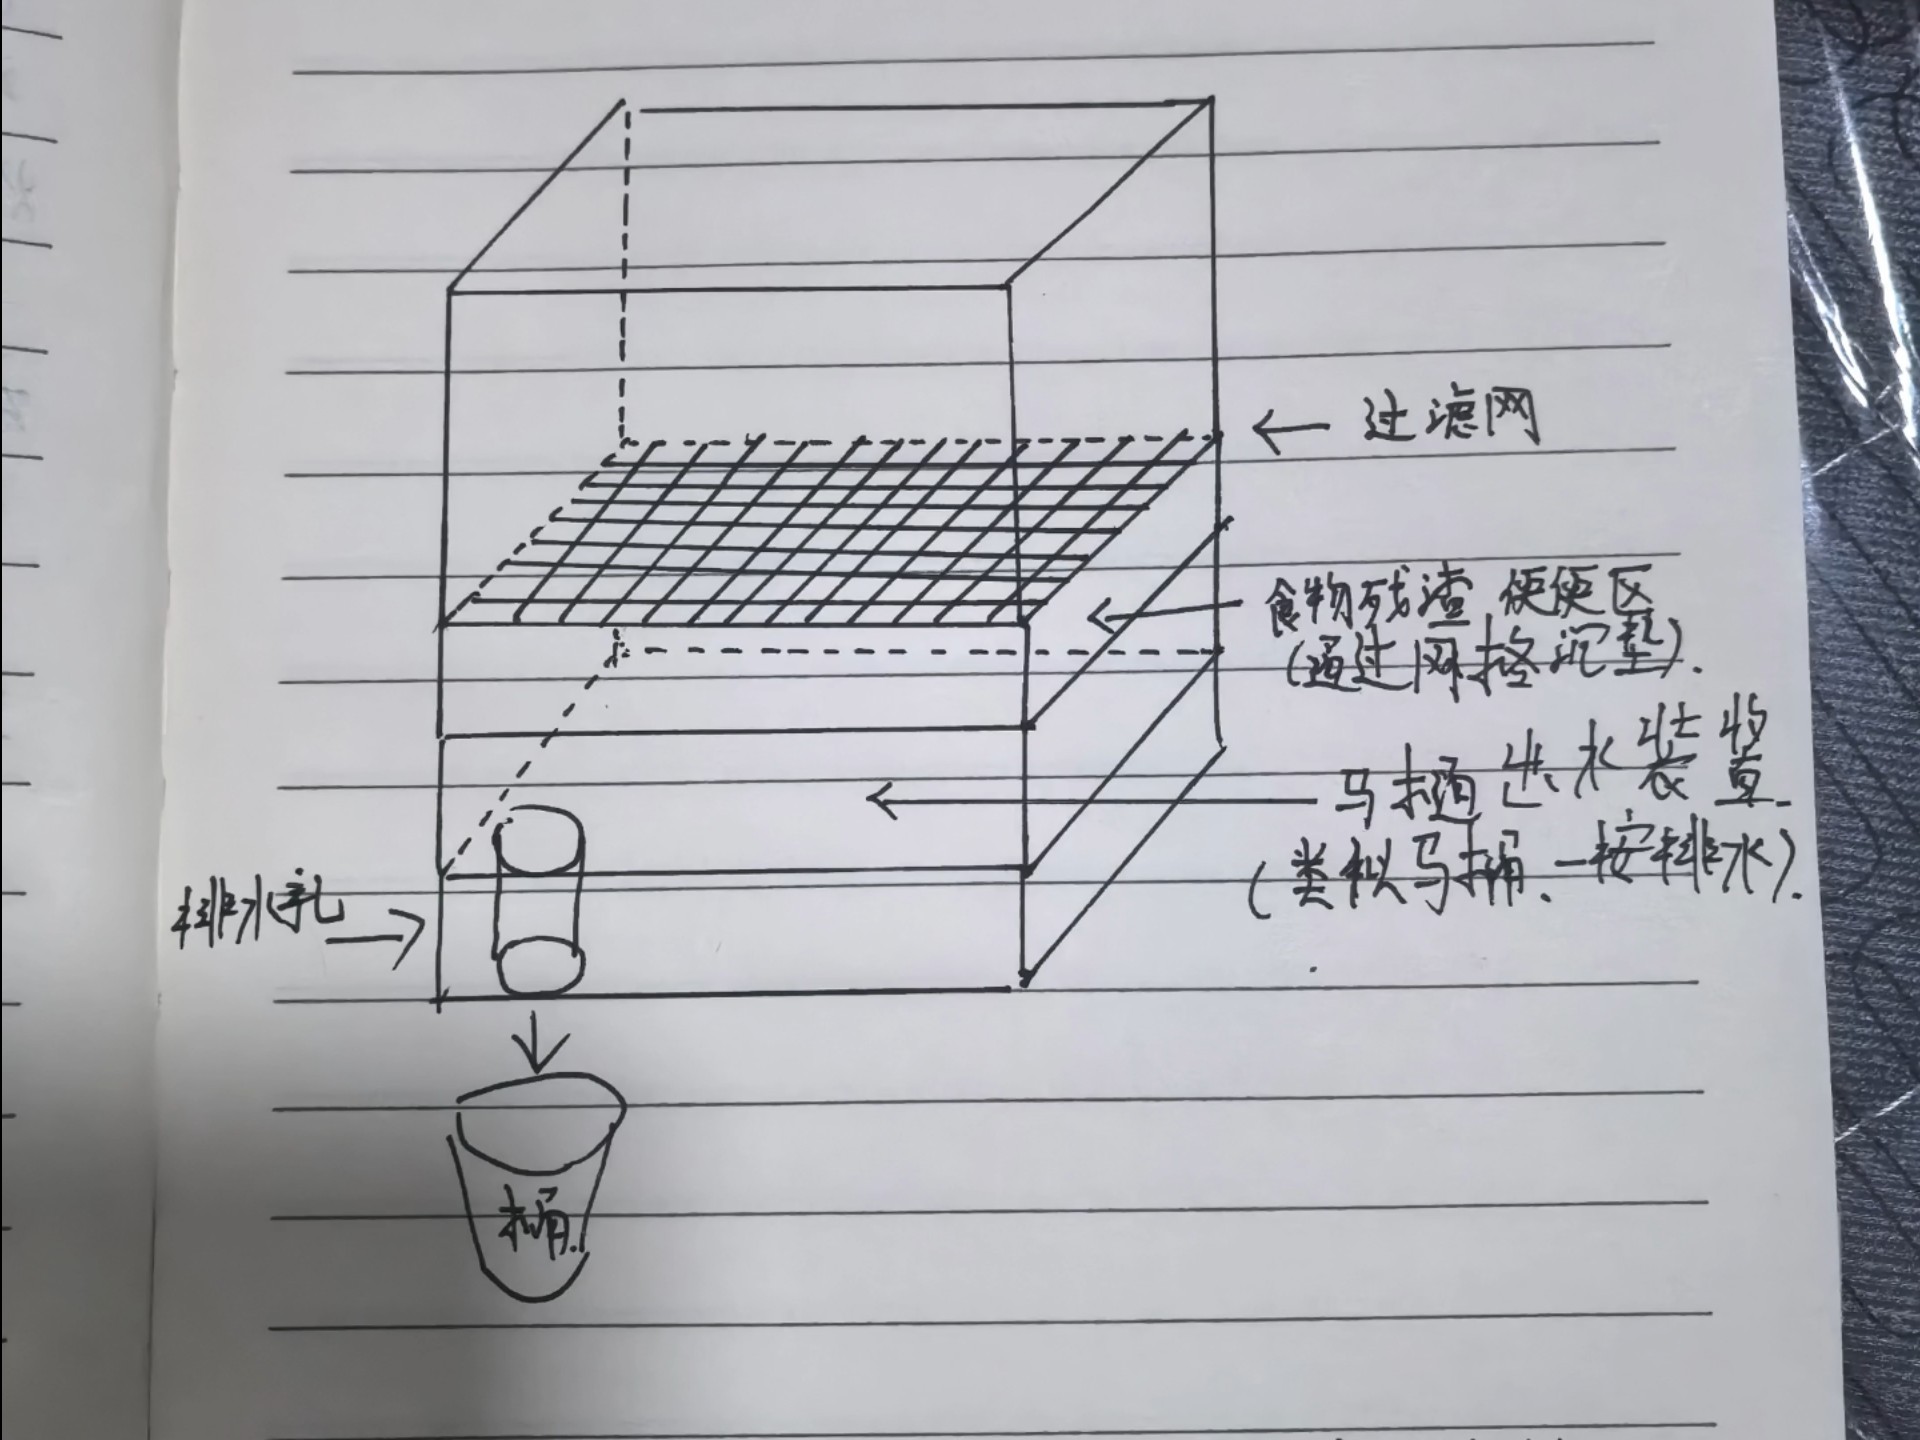 过滤网
食物残渣 便便区
(通过网格沉垫).
马桶进水装置
(类似马桶、一按排水).
排水孔
桶.